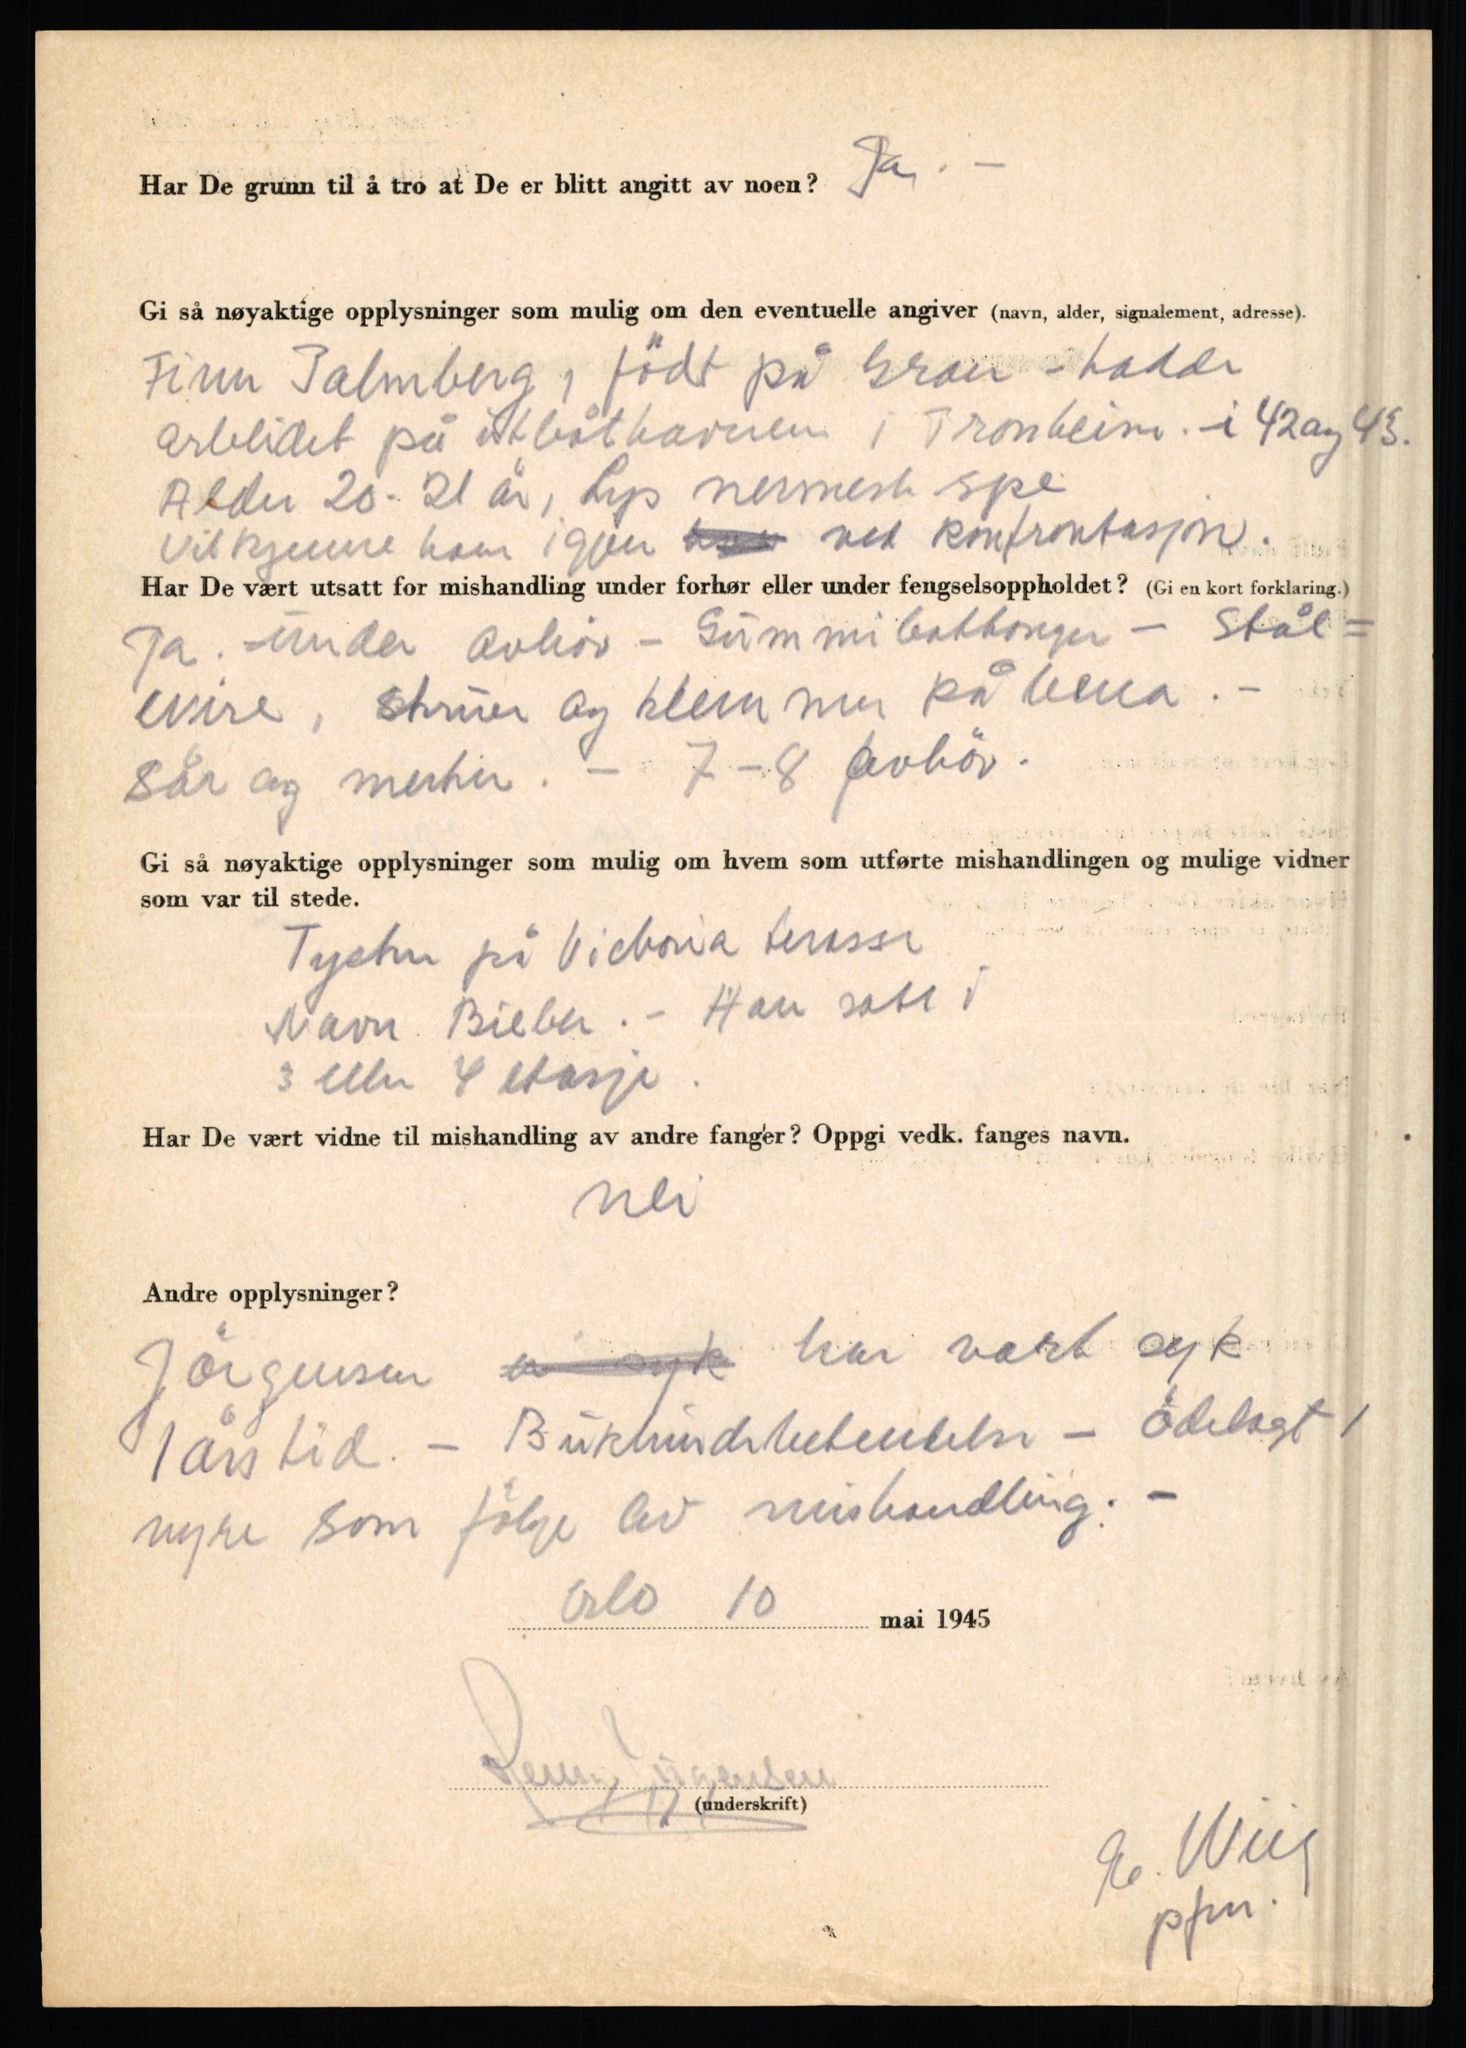 Har De grunn til å tro at De er blitt angitt av noen? Ja. —
Gi så nøyaktige opplysninger som mulig om den eventuelle angiver (navn, alder, signalement, adresse).
Finn Palmberg, födt på Gran - hadde
arbeidet på ubåthavnen i Tronheim. - i 42 og 43.
Alder 20 - 21 år, lys nermest
Vil kjenne ham igjen ved konfrontasjon.
Har De vært utsatt for mishandling under forhør eller under fengselsoppholdet? (Gi en kort forklaring.)
Ja. - Under avhör - Gummibattonger - Stål=
wire, skruer og klemmer på bena. -
Sår og merker. - 7 - 8 avhör.
Gi så nøyaktige opplysninger som mulig om hvem som utførte mishandlingen og mulige vidner
som var til stede.
Tysker på Victoria terasse
Navn Bieber. - Han satt i
3 eller 4 etasje.
Har De vært vidne til mishandling av andre fanger? Oppgi vedk. fanges navn.
Nei
Andre opplysninger?
Jörgensen er syk har vært syk
1 års tid. - Bukhindebetendelse - Ödelagt 1
nyre som fölge av mishandling. -
Oslo 10 mai 1945
Jörgensen
(underskrift)
E. Wiig
pfm.